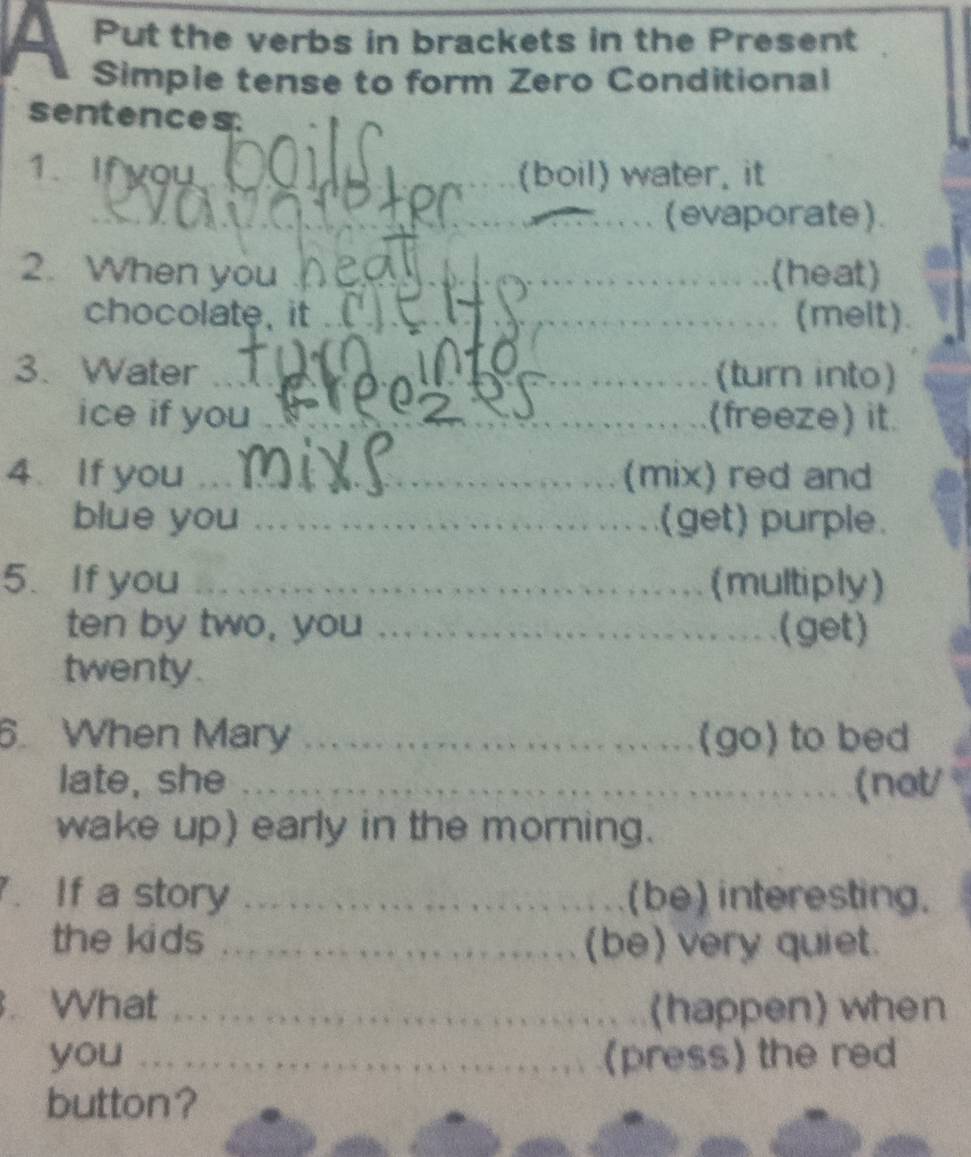 A Put the verbs in brackets in the Present
Simple tense to form Zero Conditional
sentences:
1. If you boils (boil) water, it
evaporater (evaporate).
2. When you heat (heat)
chocolate, it melts (melt).
3. Water turn into (turn into)
ice if you freezes (freeze) it.
4. If you mixs (mix) red and
blue you (get) purple.
5. If you (multiply)
ten by two, you (get)
twenty.
6. When Mary (go) to bed
late, she (not/
wake up) early in the morning.
7. If a story (be) interesting,
the kids (be) very quiet.
8. What (happen) when
you (press) the red
button?